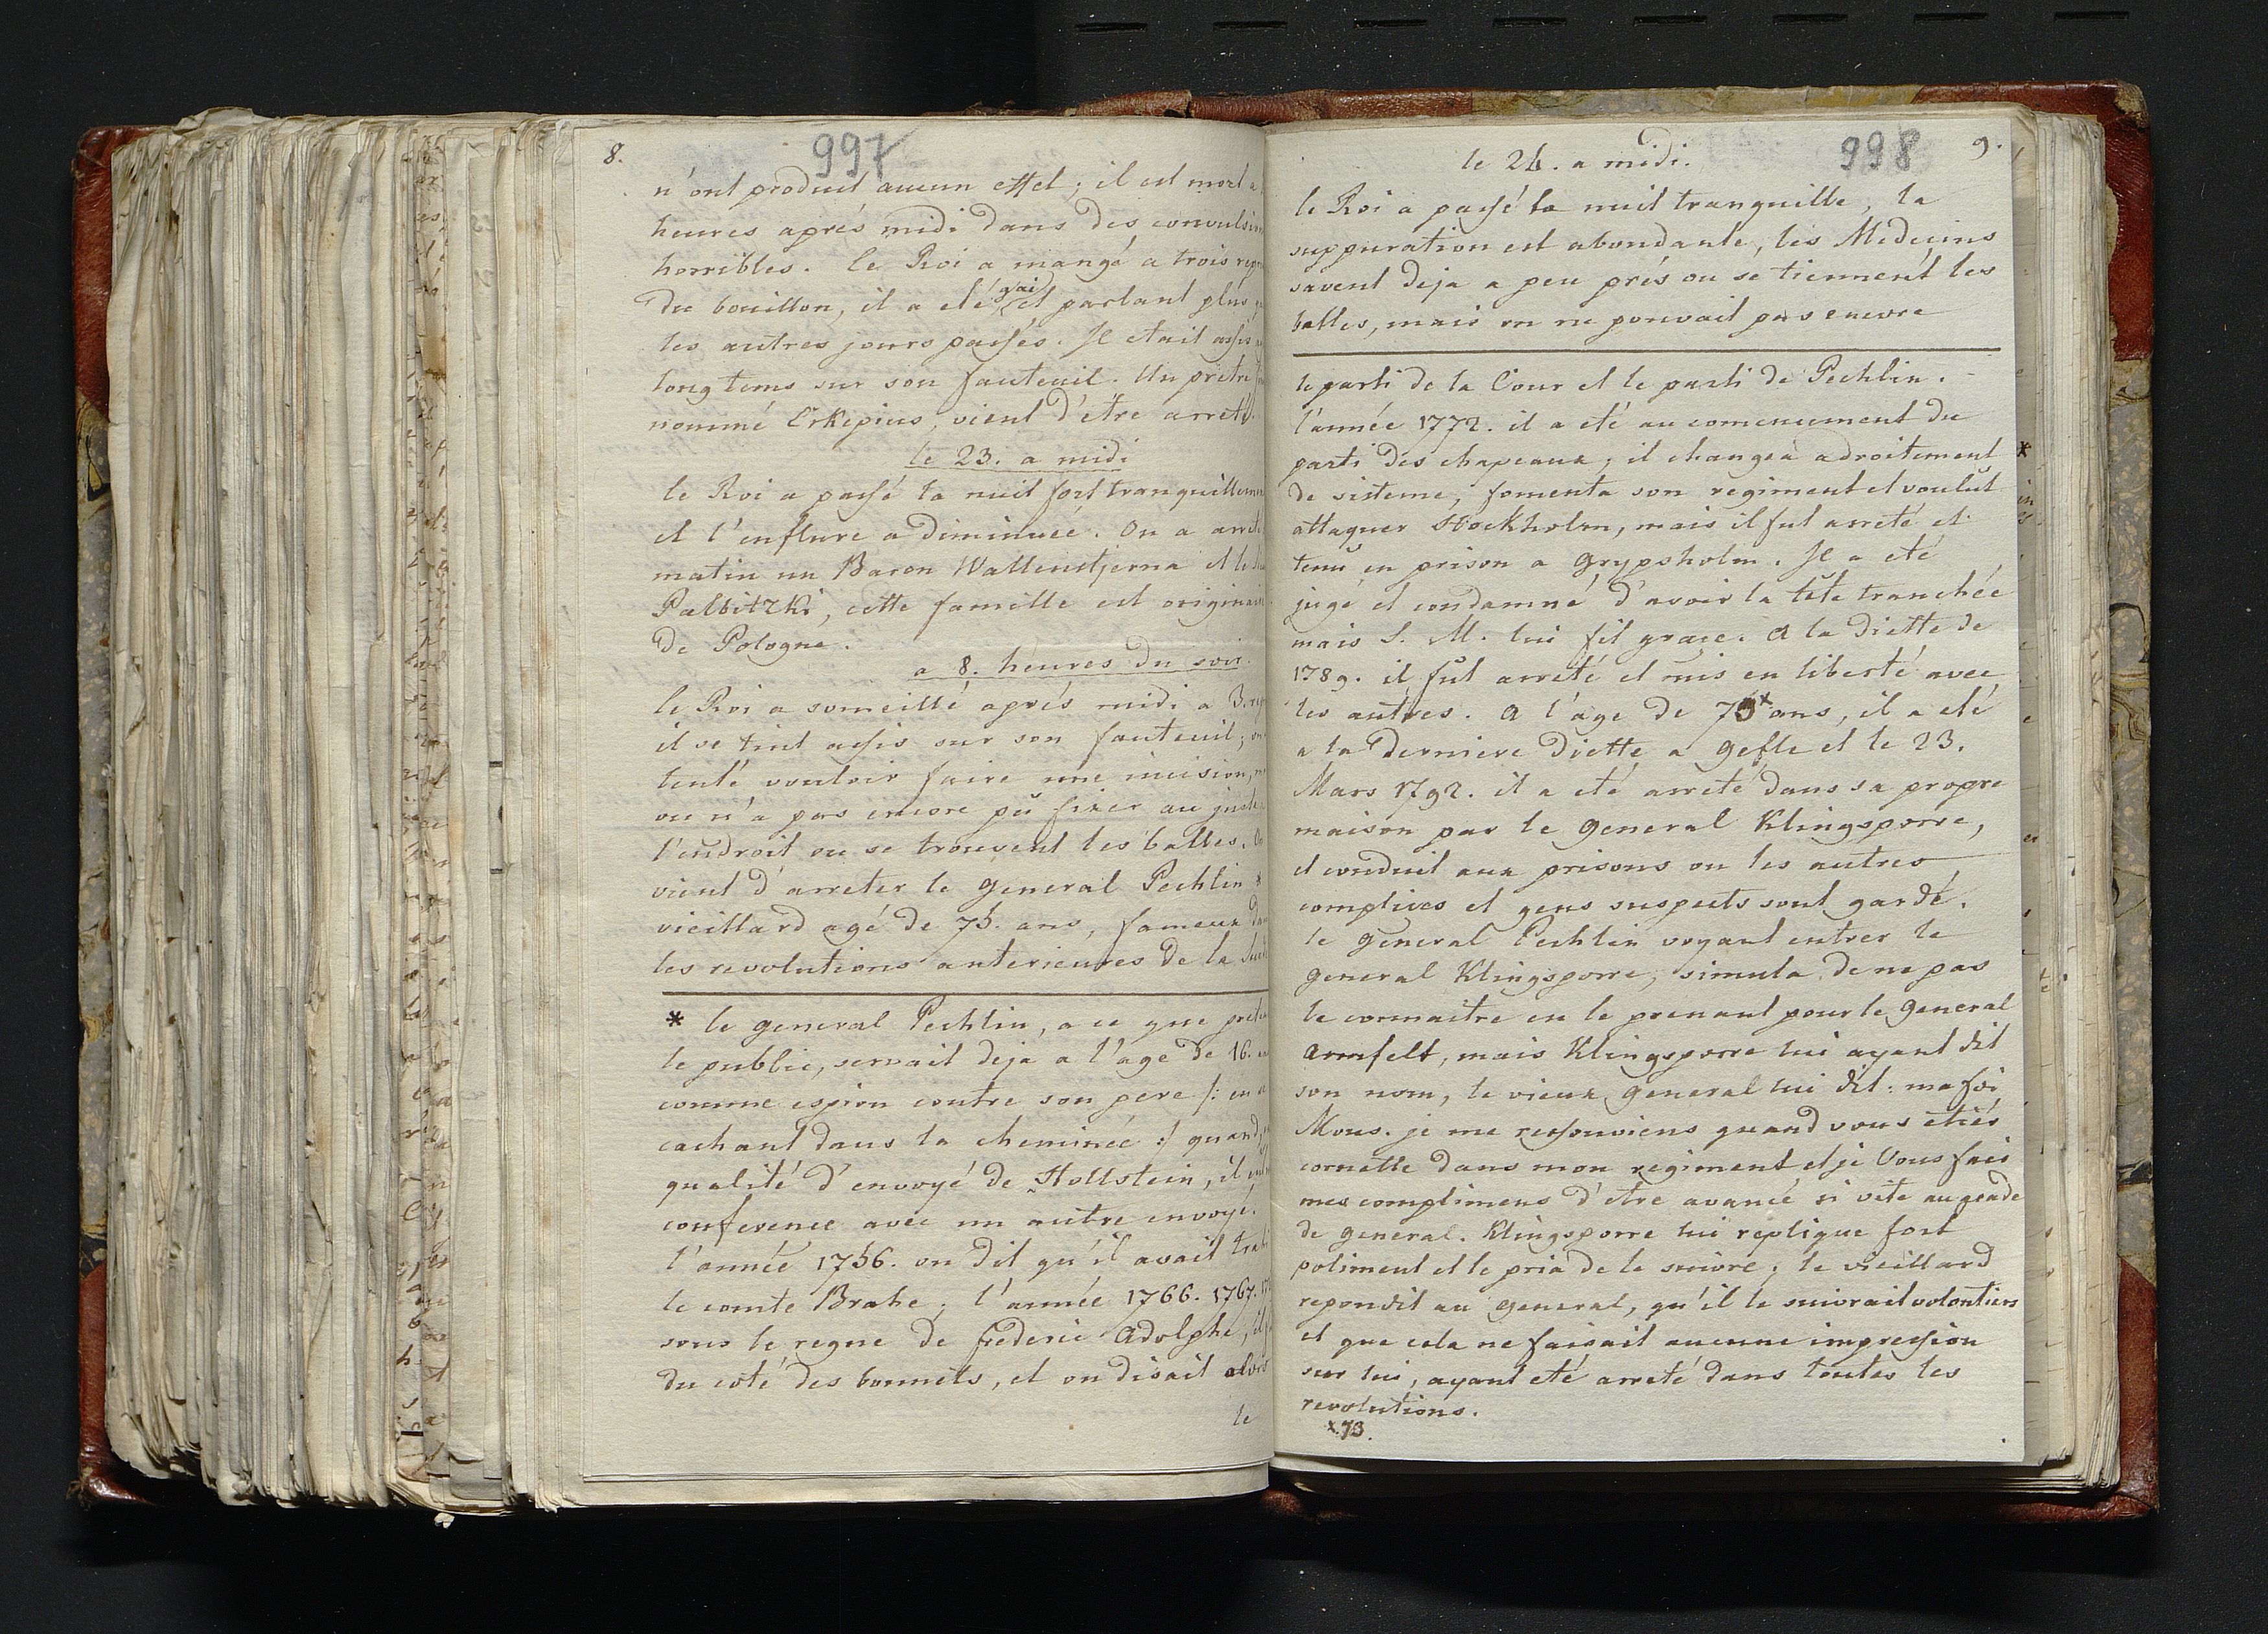 8.
997
n'ont produit aucun effet; il est mort a
heures aprés midi dans des convulsion
horribles. le Roi a mangé a trois repr
du bouillon, il a eté gai et parlant plus q
les autres jours passés. Il etait assis
long tems sur son fauteuil. Un prêtre
nommé Erkepius, vient d'être arreté.
le 23. a midi
le Roi a passé la nuit fort tranquillemen
et l'enflure a diminuée. On a arreté
matin un Baron Wallenstjerna et le
Palbitzki, cette famille est originair
de Pologne.
a 8. heures du soir.
le Roi a someillé aprés midi a 3. rep
il se tint assis sur son fauteuil; on
tenté vouloir faire une incision, m
on n'a pas encore pû fixer au juste
l'endroit ou se trouvent les balles. On
vient d'arreter le general Pechlin *
vieillard agé de 75. ans, fameux da
les revolutions anterieures de la Sued
* le general Pechlin, a ce que prete
le public, servait deja a l'age de 16. an
comme espion contre son pere /: en
cachant dans la cheminée :/ quand
qualité d'envoyé de Hollstein, il
conference avec un autre envoyé.
l'année 1756. on dit qu'il avait trahi
le comte Brahe; l'année 1766. 1767. 17
sous le regne de frederic Adolphe, il
du coté des bonnets, et on disait alors
le
998
9.
le 24. a midi.
le Roi a passé la nuit tranquille, la
suppuration est abondante, les Medecins
savent deja a peu prés ou se tiennent les
balles, mais on ne pouvait pas encore
le parti de la Cour et le parti de Pechlin.
l'année 1772. il a eté au comencement du
parti des chapeaux; il changea adroitement
de sisteme, fomenta son regiment et voulut
attaquer Stockholm, mais il fut arreté et
tenu en prison a Grypsholm. Il a eté
jugé et condamné d'avoir la tête tranchée
mais S. M. lui fit grace. A la Diette de
1789. il fut arreté et mis en liberté avec
les autres. A l'age de 75 x ans, il a eté
a la derniere Diette a Gefle et le 23.
Mars 1792. il a eté arreté dans sa propre
maison par le General Klingsporre,
et conduit aux prisons ou les autres
complices et gens suspects sont gardé.
le General Pechlin voyant entrer le
General Klingsporre, simula de ne pas
le connaitre en le prenant pour le General
Armfelt, mais Klingsporre lui ayant dit
son nom, le vieux General lui dit: ma foi
Mons. je me ressouviens quand vous etiés
cornette dans mon regiment et je Vous fais
mes complimens d'etre avancé si vite au grade
de General. Klingsporre lui replique fort
poliment et le pria de le suivre; le vieillard
repondit au General, qu'il le suivrait volontiers
et que cela ne faisait aucune impression
sur lui, ayant eté arreté dans toutes les
revolutions.
x. 73.